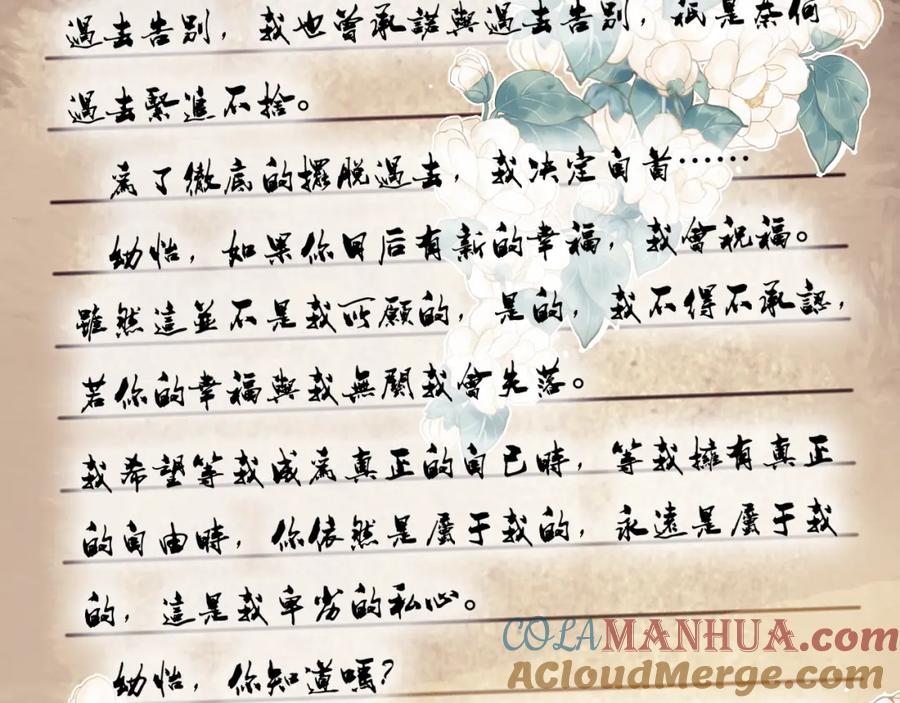 過去告別，我也曾承諾與過去告別，祇是奈何
過去緊追不捨。
爲了徹底的擺脫過去，我決定自首……
幼怡，如果你日后有新的幸福，我會祝福。
雖然這並不是我所願的，是的，我不得不承認，
若你的幸福與我無關我會失落。
我希望等我成爲真正的自己時，等我擁有真正
的自由時，你依然是屬于我的，永遠是屬于我
的，這是我卑劣的私心。
幼怡，你知道嗎？
COLAMANHUA.com
ACloudMerge.com